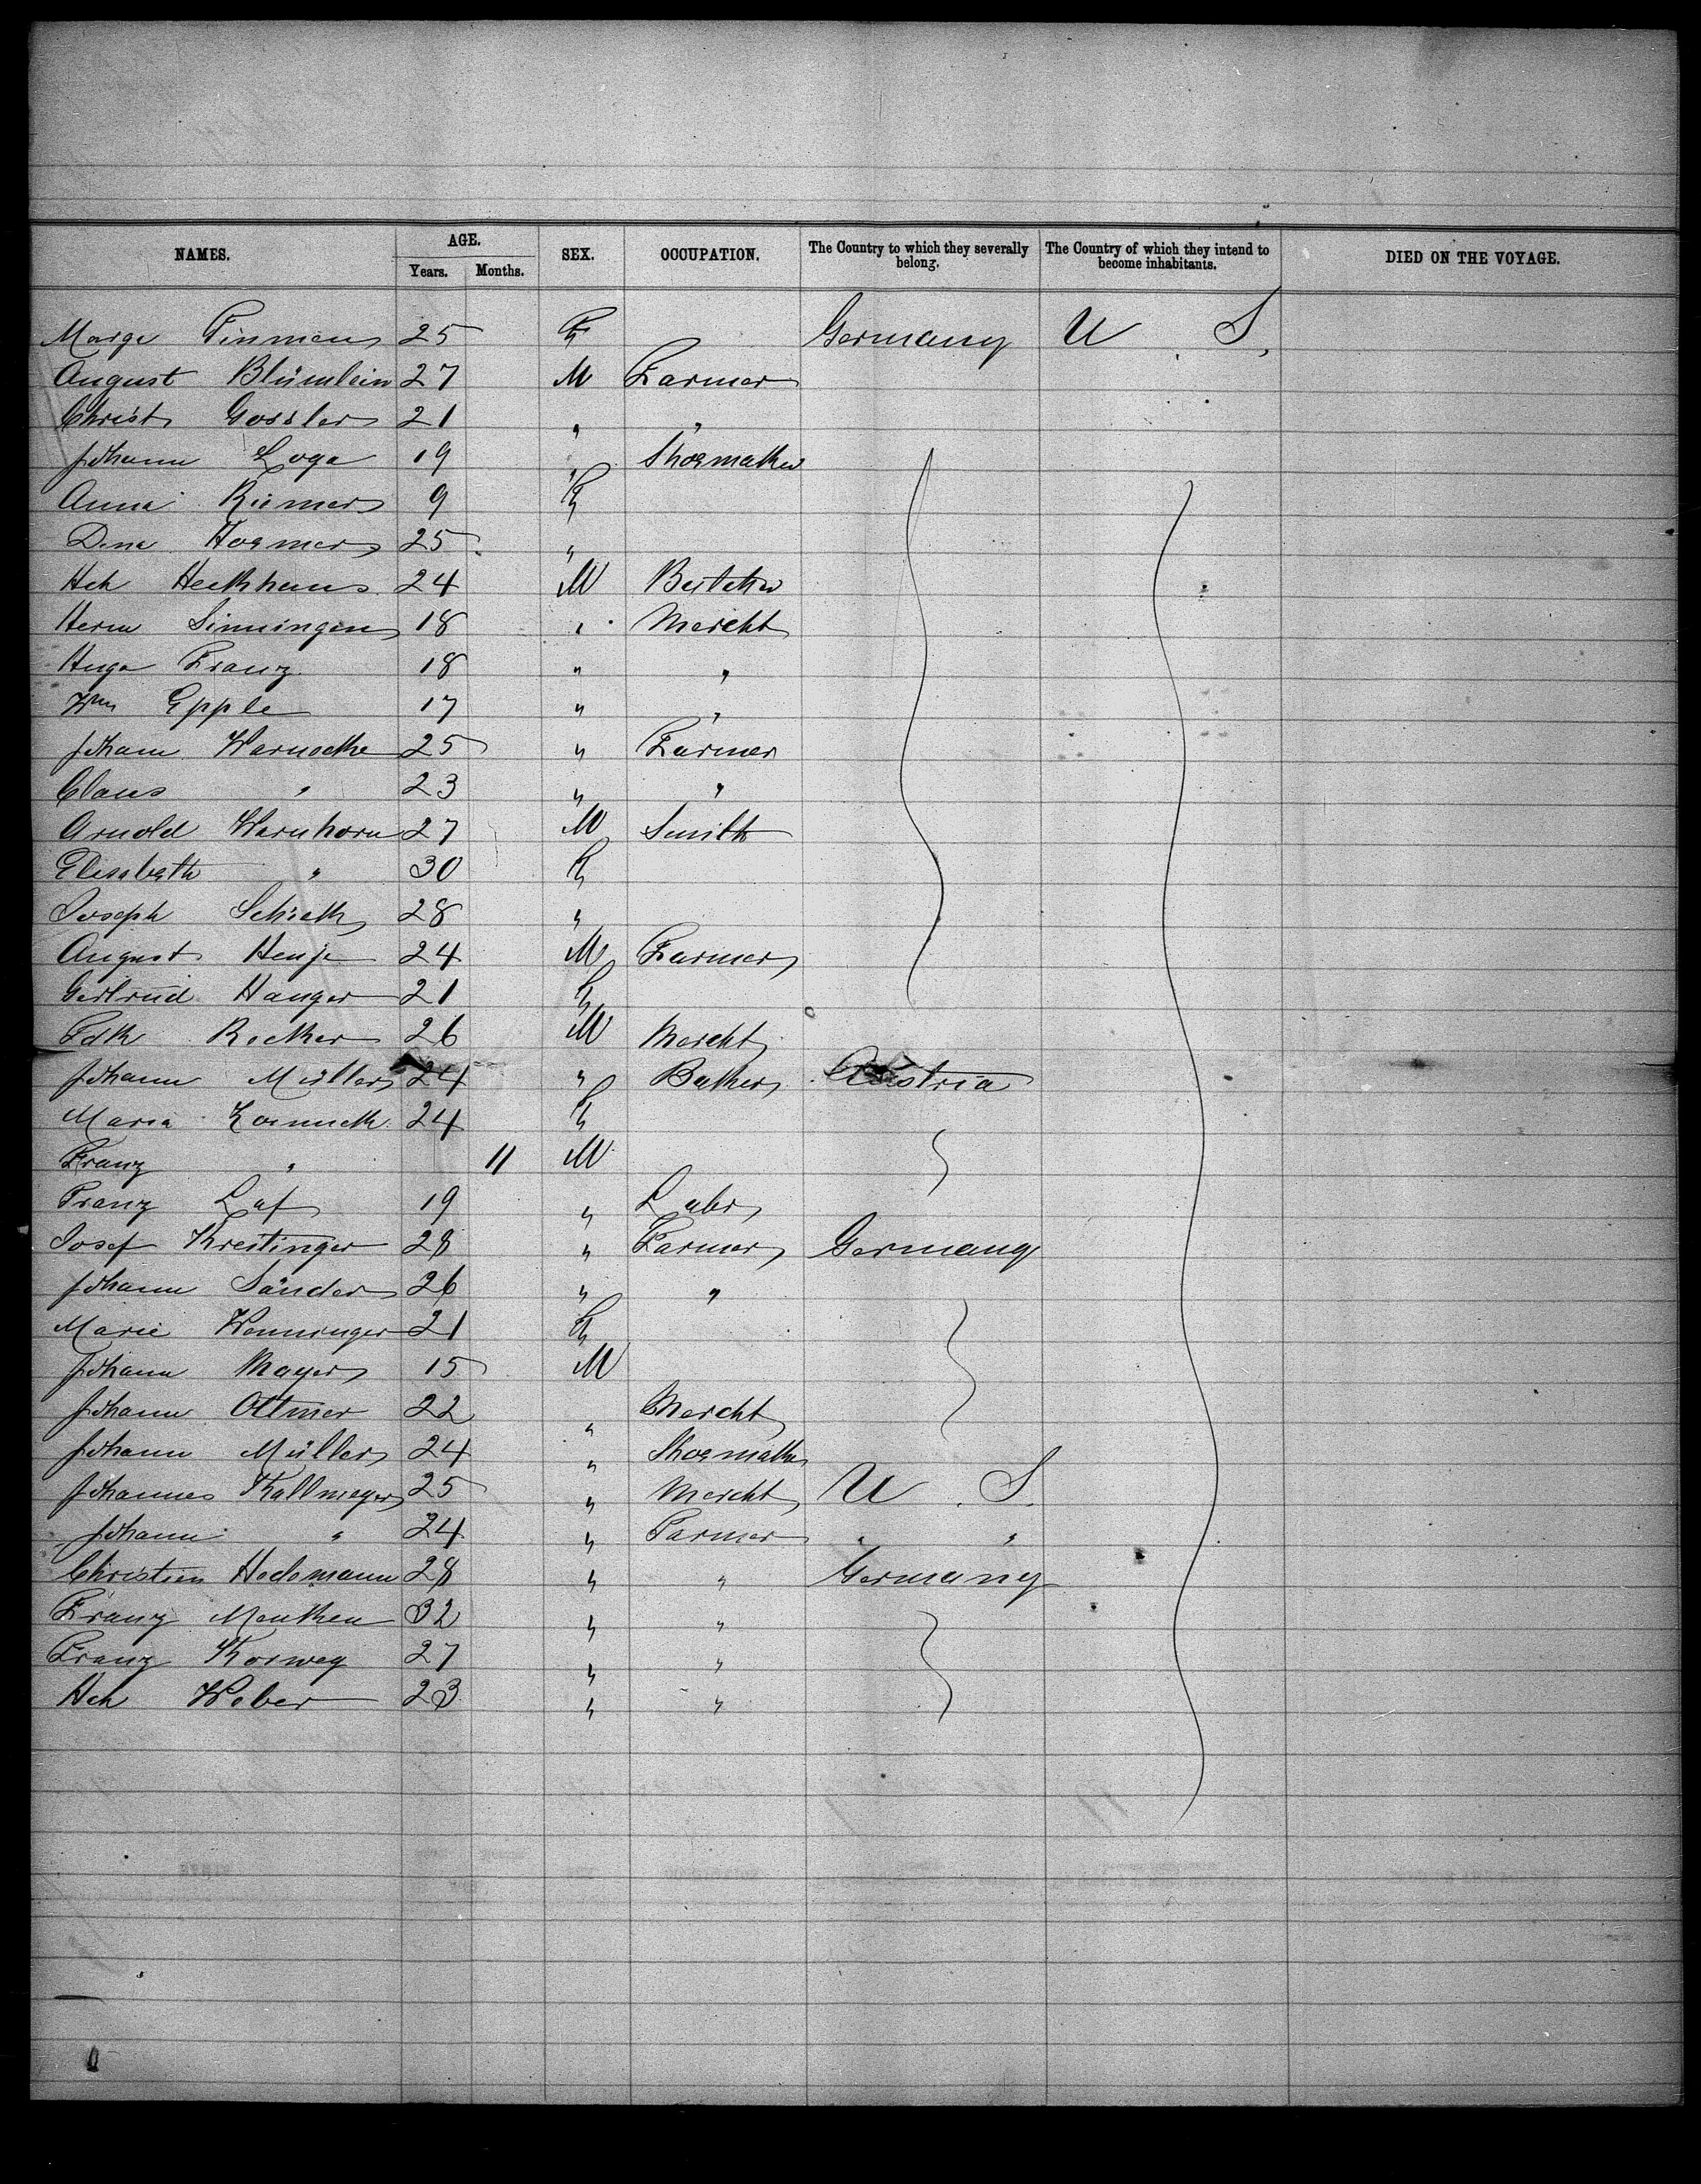 NAMES. AGE. SEX. OCCUPATION. The Country to which they severally belong. The Country of which they intend to become inhabitants. DIED ON THE VOYAGE.
Years. Months.
Marge Tinmen 25 F Germany U S.
August Blümlein 27 M Farmer
Christ Gossler 21 " "
Johann Loge 19 " Shoemaker
Anna Riemer 9 F
Dina Hormer 25 "
Hch Heckhaus 24 M
Herm Sinningen 18 " Mercht
Hugo Franz 18 " "
Wm Epple 17 " "
Johann Warnecke 25 " Farmer
Claus " 23 " "
Arnold Warnhorn 27 M Smith
Elisabeth " 30 F
Joseph 28 "
August Henje 24 M Farmer
Gertrud Hanger 21 F
Fdk Becker 26 M Mercht
Johann Müller 24 " Baker Austria
Maria 24 F
Franz " 11 M
Franz Laf 19 " Labr
Josef Krestinger 28 " Farmer Germany
Johann Sander 26 " "
Marie Wenninger 21 F
Johann Mayer 15 M
Johann Ottmer 22 " Mercht
Johann Müller 24 " Shoemaker
Johannes Kallmeyer 25 " Mercht U S.
Johann " 24 " Farmer " "
Christian Hedemann 28 " " Germany
Franz Menken 32 " "
Franz Korweg 27 " "
Hch Weber 23 " "